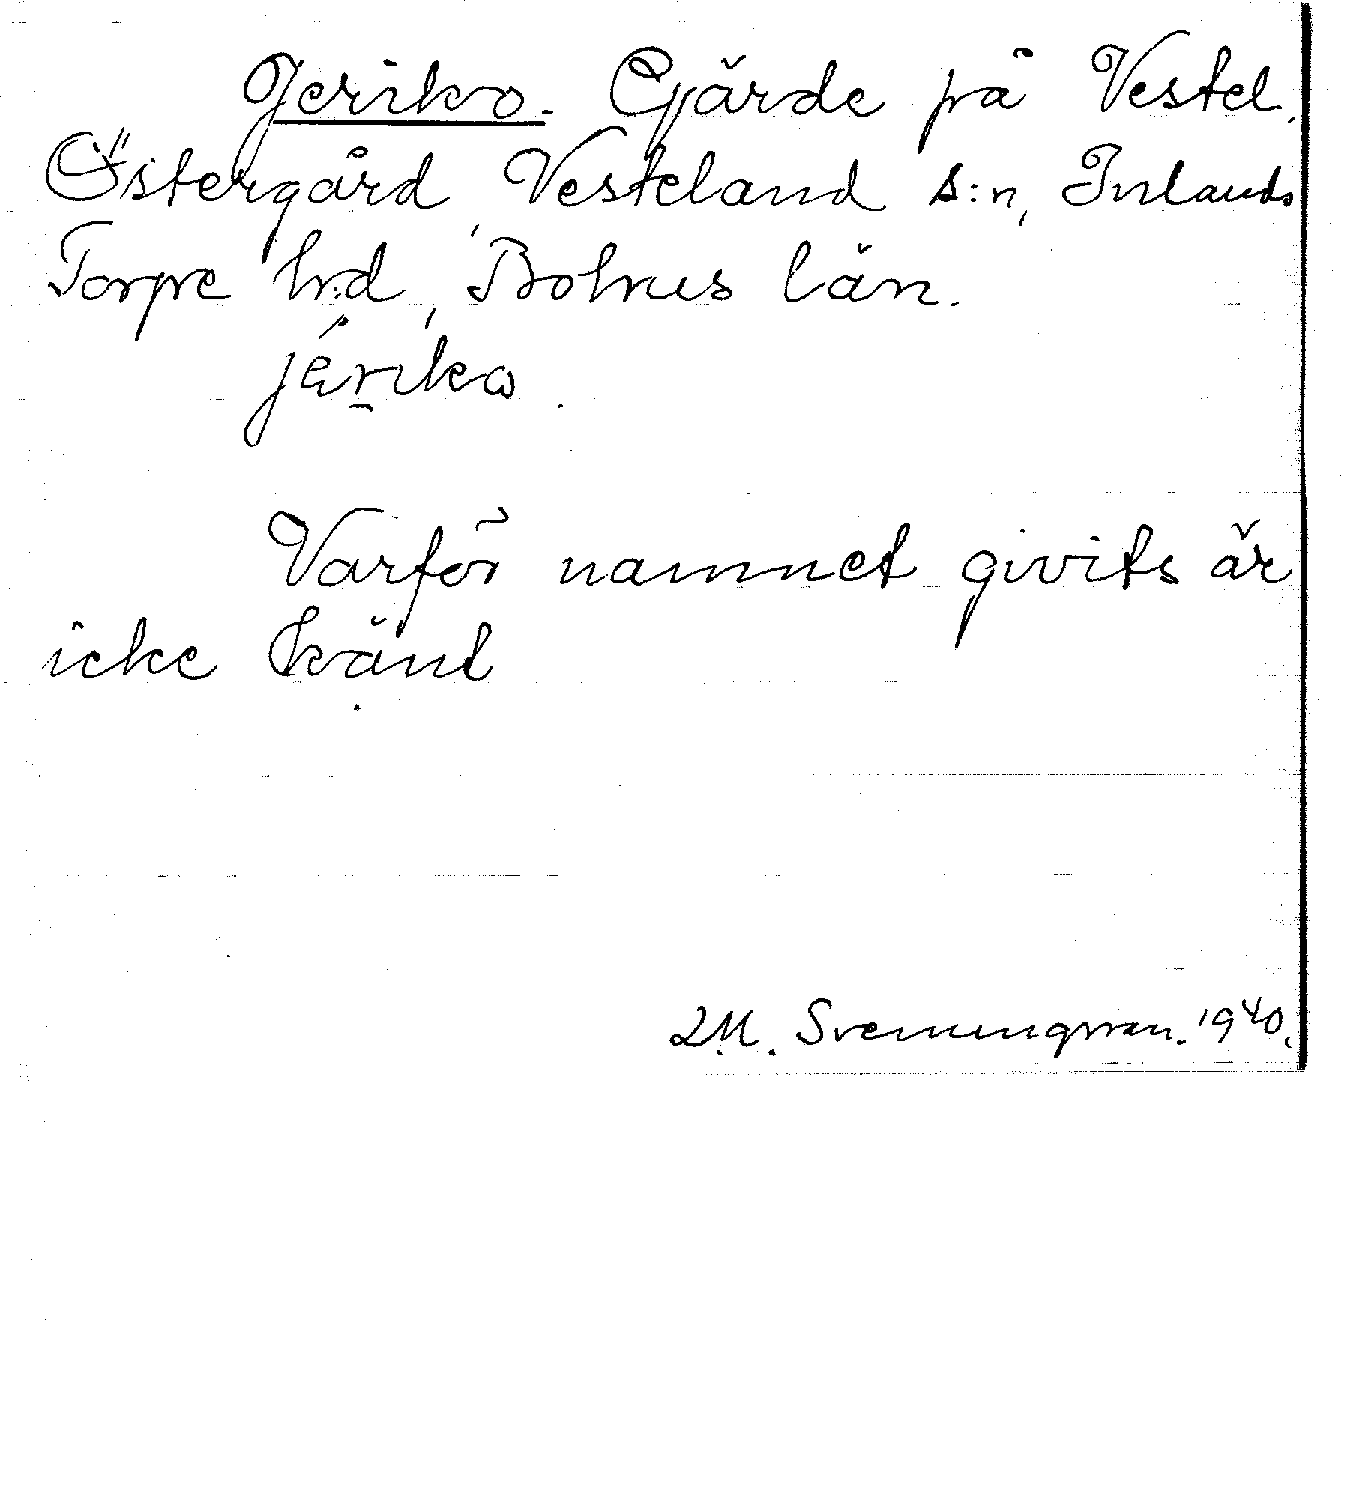 Jeriko. Gjärde på Vestel.
Östergård, Vesteland s:n, Inlands
Torpe hrd, Bohus län.
jériko.
Varför namnet givits är
icke känt
D.M. Svenungsson. 1940.